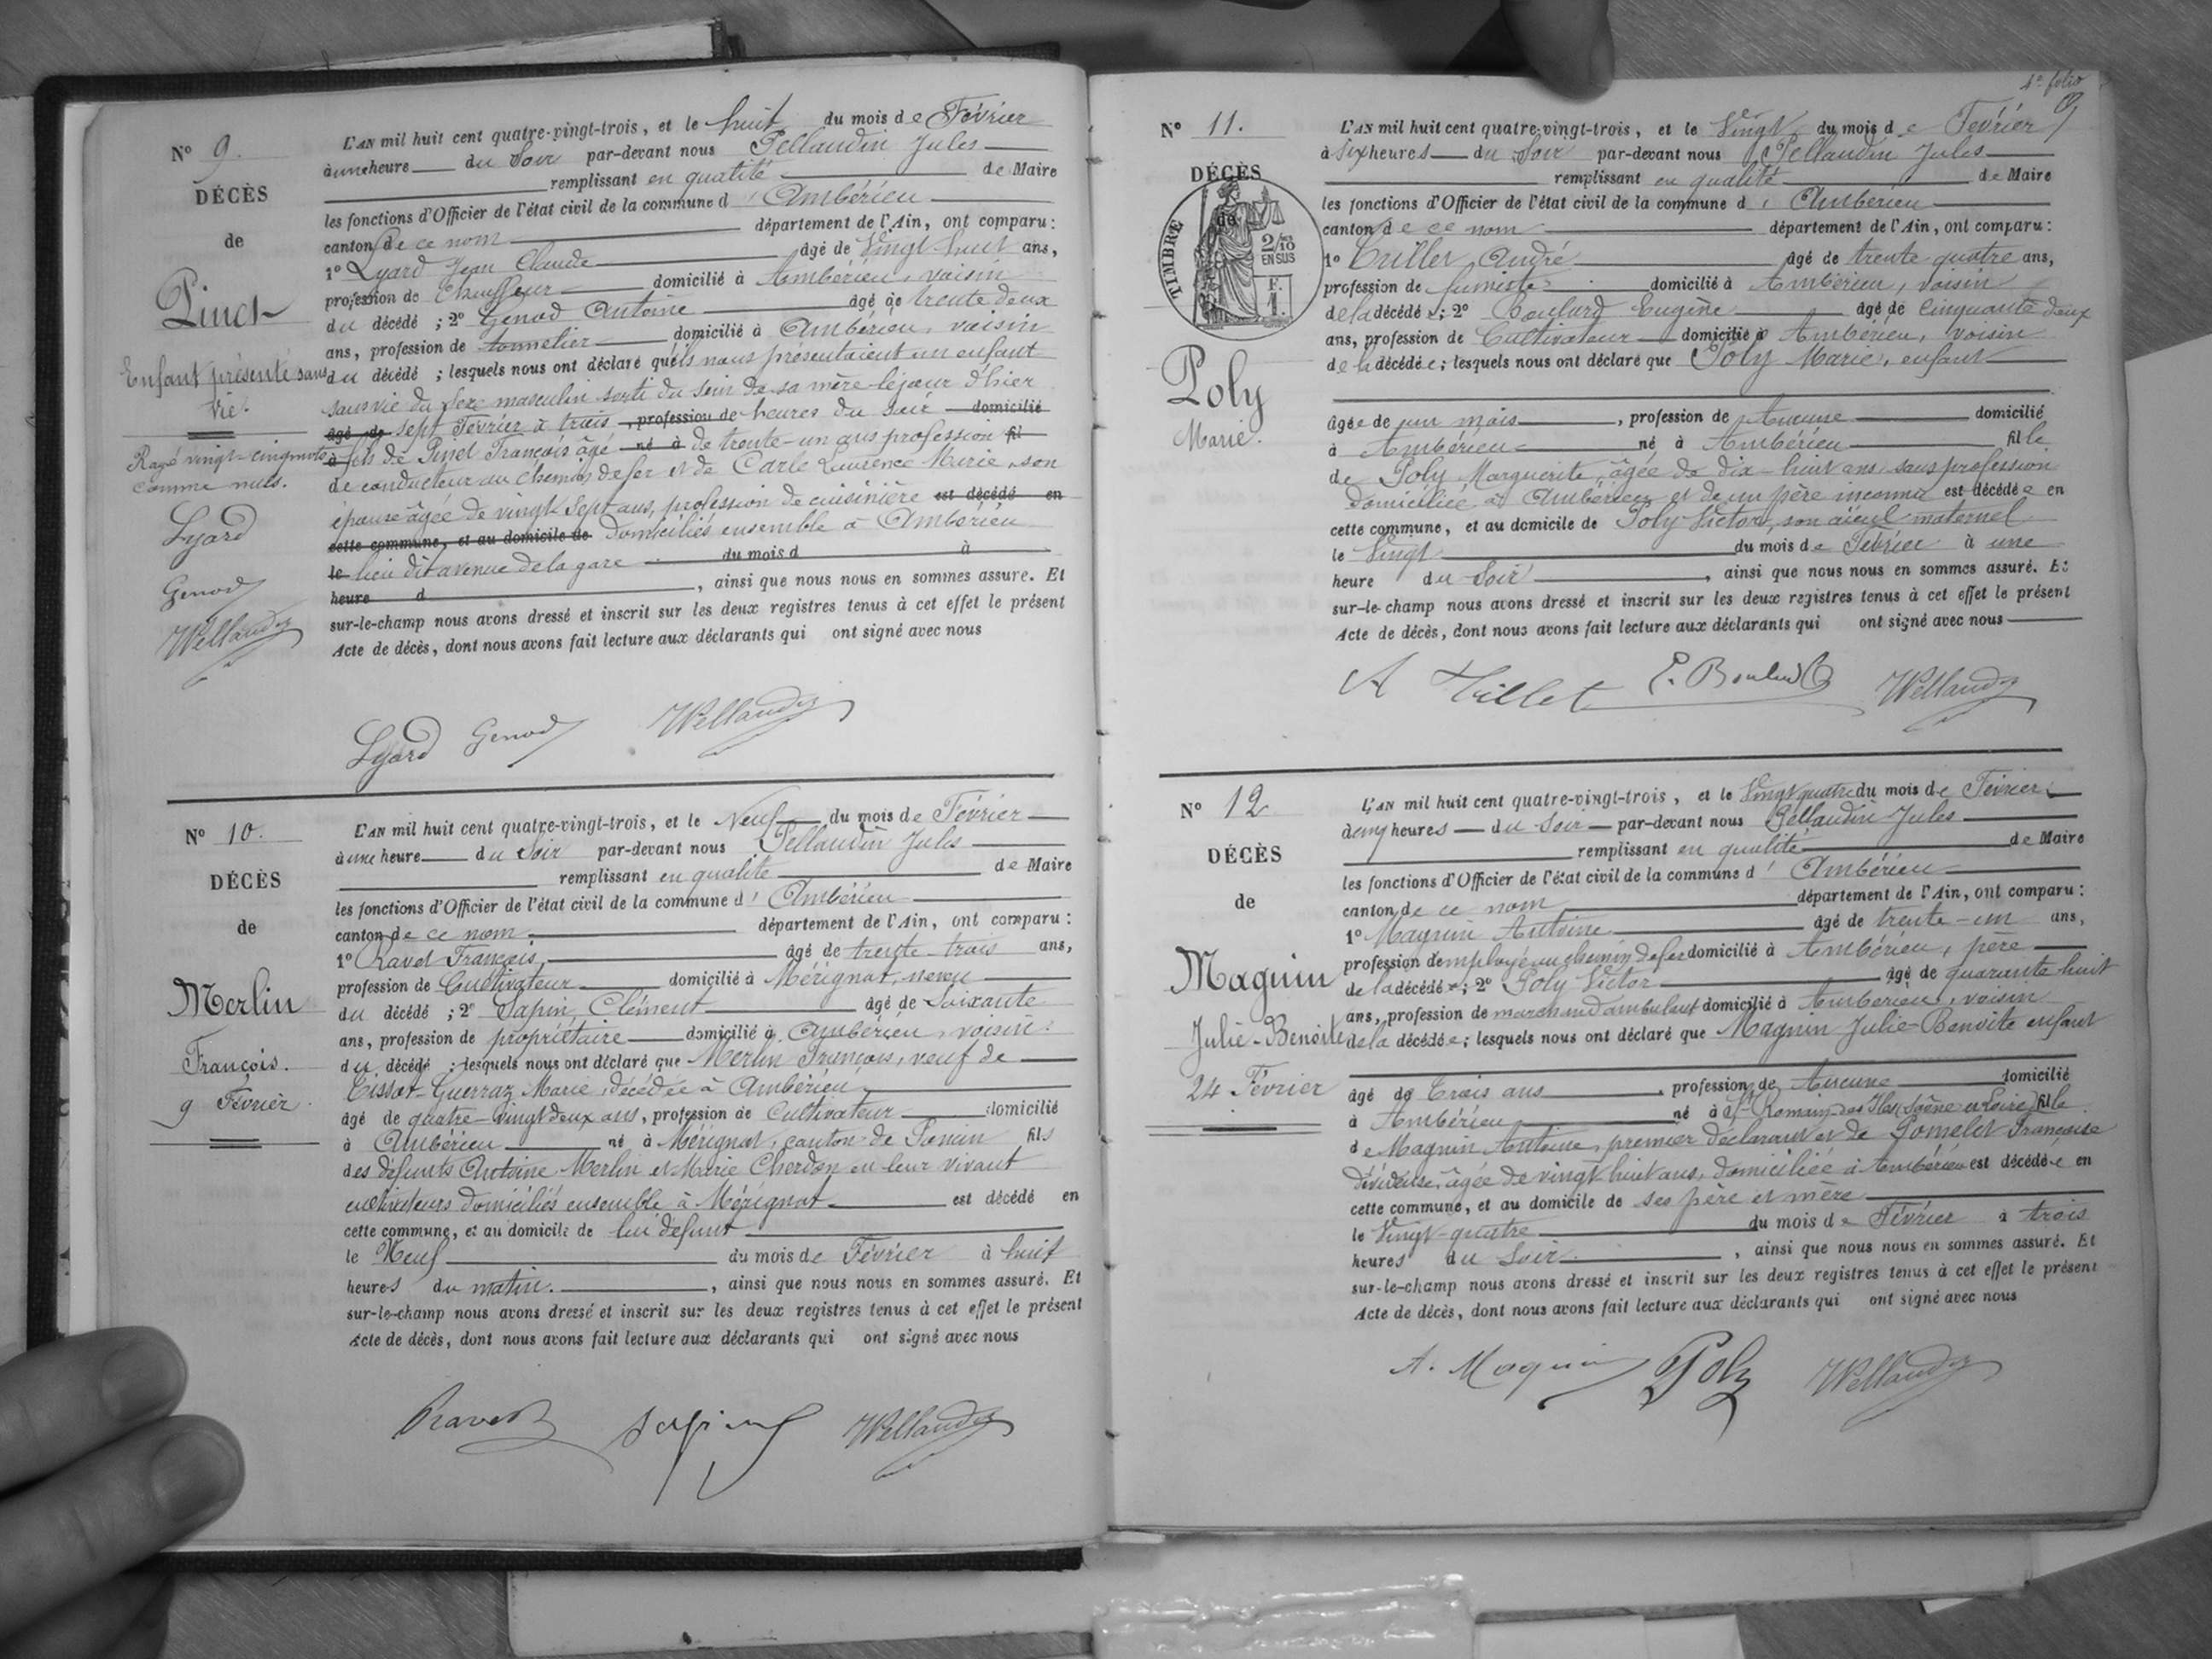 Nº 9.
DÉCÈS
de
Pinet
Enfant présenté sans
vie.
Rayé vingt-cinq mots
comme nuls.
Lyard
Genod
Pellaudin
L'AN mil huit cent quatre-vingt-trois, et le huit du mois de Février
à une heure du soir par-devant nous Pellaudin Jules
remplissant en qualité de Maire
les fonctions d'Officier de l'état civil de la commune d'Ambérieu
canton de ce nom département de l'Ain, ont comparu:
1º Lyard Jean Claude âgé de vingt huit ans,
profession de Chauffeur domicilié à Ambérieu, voisin
du décédé ; 2º Genod Antoine âgé de trente deux
ans, profession de tonnelier domicilié à Ambérieu, voisin
du décédé ; lesquels nous ont déclaré qu'ils nous présentaient un enfant
sans vie du sexe masculin sorti du sein de sa mère le jour d'hier
âgé de sept Février à trois , profession de heures du soir domicilié
à fils de Pinet François âgé né à de trente-un ans profession fil
de conducteur au chemin de fer et de Carle Laurence Marie, son
épouse âgée de vingt sept ans, profession de cuisinière est décédé en
cette commune, et au domicile de Domiciliés ensemble à Ambérieu
le lieu dit avenue de la gare du mois d à
heure d , ainsi que nous nous en sommes assuré. Et
sur-le-champ nous avons dressé et inscrit sur les deux registres tenus à cet effet le présent
Acte de décès, dont nous avons fait lecture aux déclarants qui ont signé avec nous
Lyard Genod Pellaudin
Nº 10.
DÉCÈS
de
Merlin
François.
9 Février.
L'AN mil huit cent quatre-vingt-trois, et le Neuf du mois de Février
à une heure du soir par-devant nous Pellaudin Jules
remplissant en qualité de Maire
les fonctions d'Officier de l'état civil de la commune d'Ambérieu
canton de ce nom département de l'Ain, ont comparu :
1º Ravet François, âgé de trente-trois ans,
profession de Cultivateur domicilié à Mérignat, neveu
du décédé ; 2º Sapin Clément âgé de soixante
ans, profession de propriétaire domicilié à Ambérieu, voisin
du décédé ; lesquels nous ont déclaré que Merlin François, veuf de
Tissot-Guerraz Marie, décédée à Ambérieu,
âgé de quatre-vingt deux ans, profession de Cultivateur domicilié
à Ambérieu né à Mérignat, canton de Poncin fils
des défunts Antoine Merlin et Marie Cherdon en leur vivant
cultivateurs domiciliés ensemble à Mérignat est décédé en
cette commune, et au domicile de lui défunt
le Neuf du mois de Février à huit
heures du matin. , ainsi que nous nous en sommes assuré. Et
sur-le-champ nous avons dressé et inscrit sur les deux registres tenus à cet effet le présent
Acte de décès, dont nous avons fait lecture aux déclarants qui ont signé avec nous
Ravet Sapin Pellaudin
4e folio
9
Nº 11.
DÉCÈS
de
TIMBRE
2/10
EN SUS
F.
1.
Poly
Marie.
L'AN mil huit cent quatre-vingt-trois, et le Vingt du mois de Février
à six heures du soir par-devant nous Pellaudin Jules
remplissant en qualité de Maire
les fonctions d'Officier de l'état civil de la commune d'Ambérieu
canton de ce nom département de l'Ain, ont comparu :
1º Tuillet André âgé de trente quatre ans,
profession de fumiste domicilié à Ambérieu, voisin
de la décédée ; 2º Boulard Eugène âgé de cinquante deux
ans, profession de Cultivateur domicilié à Ambérieu, voisin
de la décédée ; lesquels nous ont déclaré que Poly Marie, enfant
âgée de un mois , profession de Aucune domicilié
à Ambérieu né à Ambérieu fille
de Poly Marguerite, âgée de dix-huit ans, sans profession
domiciliée à Ambérieu et de un père inconnu est décédée en
cette commune, et au domicile de Poly Victor, son aïeul maternel
le Vingt du mois de Février à une
heure du soir , ainsi que nous nous en sommes assuré. Et
sur-le-champ nous avons dressé et inscrit sur les deux registres tenus à cet effet le présent
Acte de décès, dont nous avons fait lecture aux déclarants qui ont signé avec nous
E. Boulard Pellaudin
Nº 12
DÉCÈS
de
Magnin
Julie-Benoite
24 Février
L'AN mil huit cent quatre-vingt-trois, et le Vingt quatre du mois de Février
à cinq heures du soir par-devant nous Pellaudin Jules
remplissant en qualité de Maire
les fonctions d'Officier de l'état civil de la commune d'Ambérieu
canton de ce nom département de l'Ain, ont comparu :
1º Magnin Antoine âgé de trente-un ans,
profession d'employé au chemin de fer domicilié à Ambérieu, père
de la décédée ; 2º Poly Victor âgé de quarante huit
ans, profession de marchand ambulant domicilié à Ambérieu, voisin
de la décédée ; lesquels nous ont déclaré que Magnin Julie-Benoite enfant
âgé de Trois ans , profession de Aucune domicilié
à Ambérieu né à St Romain des Iles (Saône et Loire) fille
de Magnin Antoine, premier déclarant et de Pomelet Françoise
dévideuse, âgée de vingt huit ans, domiciliée à Ambérieu est décédée en
cette commune, et au domicile de ses père et mère
le Vingt-quatre du mois de Février à trois
heures du soir , ainsi que nous nous en sommes assuré. Et
sur-le-champ nous avons dressé et inscrit sur les deux registres tenus à cet effet le présent
Acte de décès, dont nous avons fait lecture aux déclarants qui ont signé avec nous
A. Magnin Poly Pellaudin